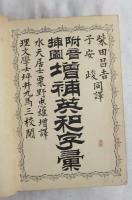 柴田昌吉
子安峻
同譯
附音插圖
增補英和字彙
水天居士栗野忠雄增譯
理文學士坪井九馬三校閱